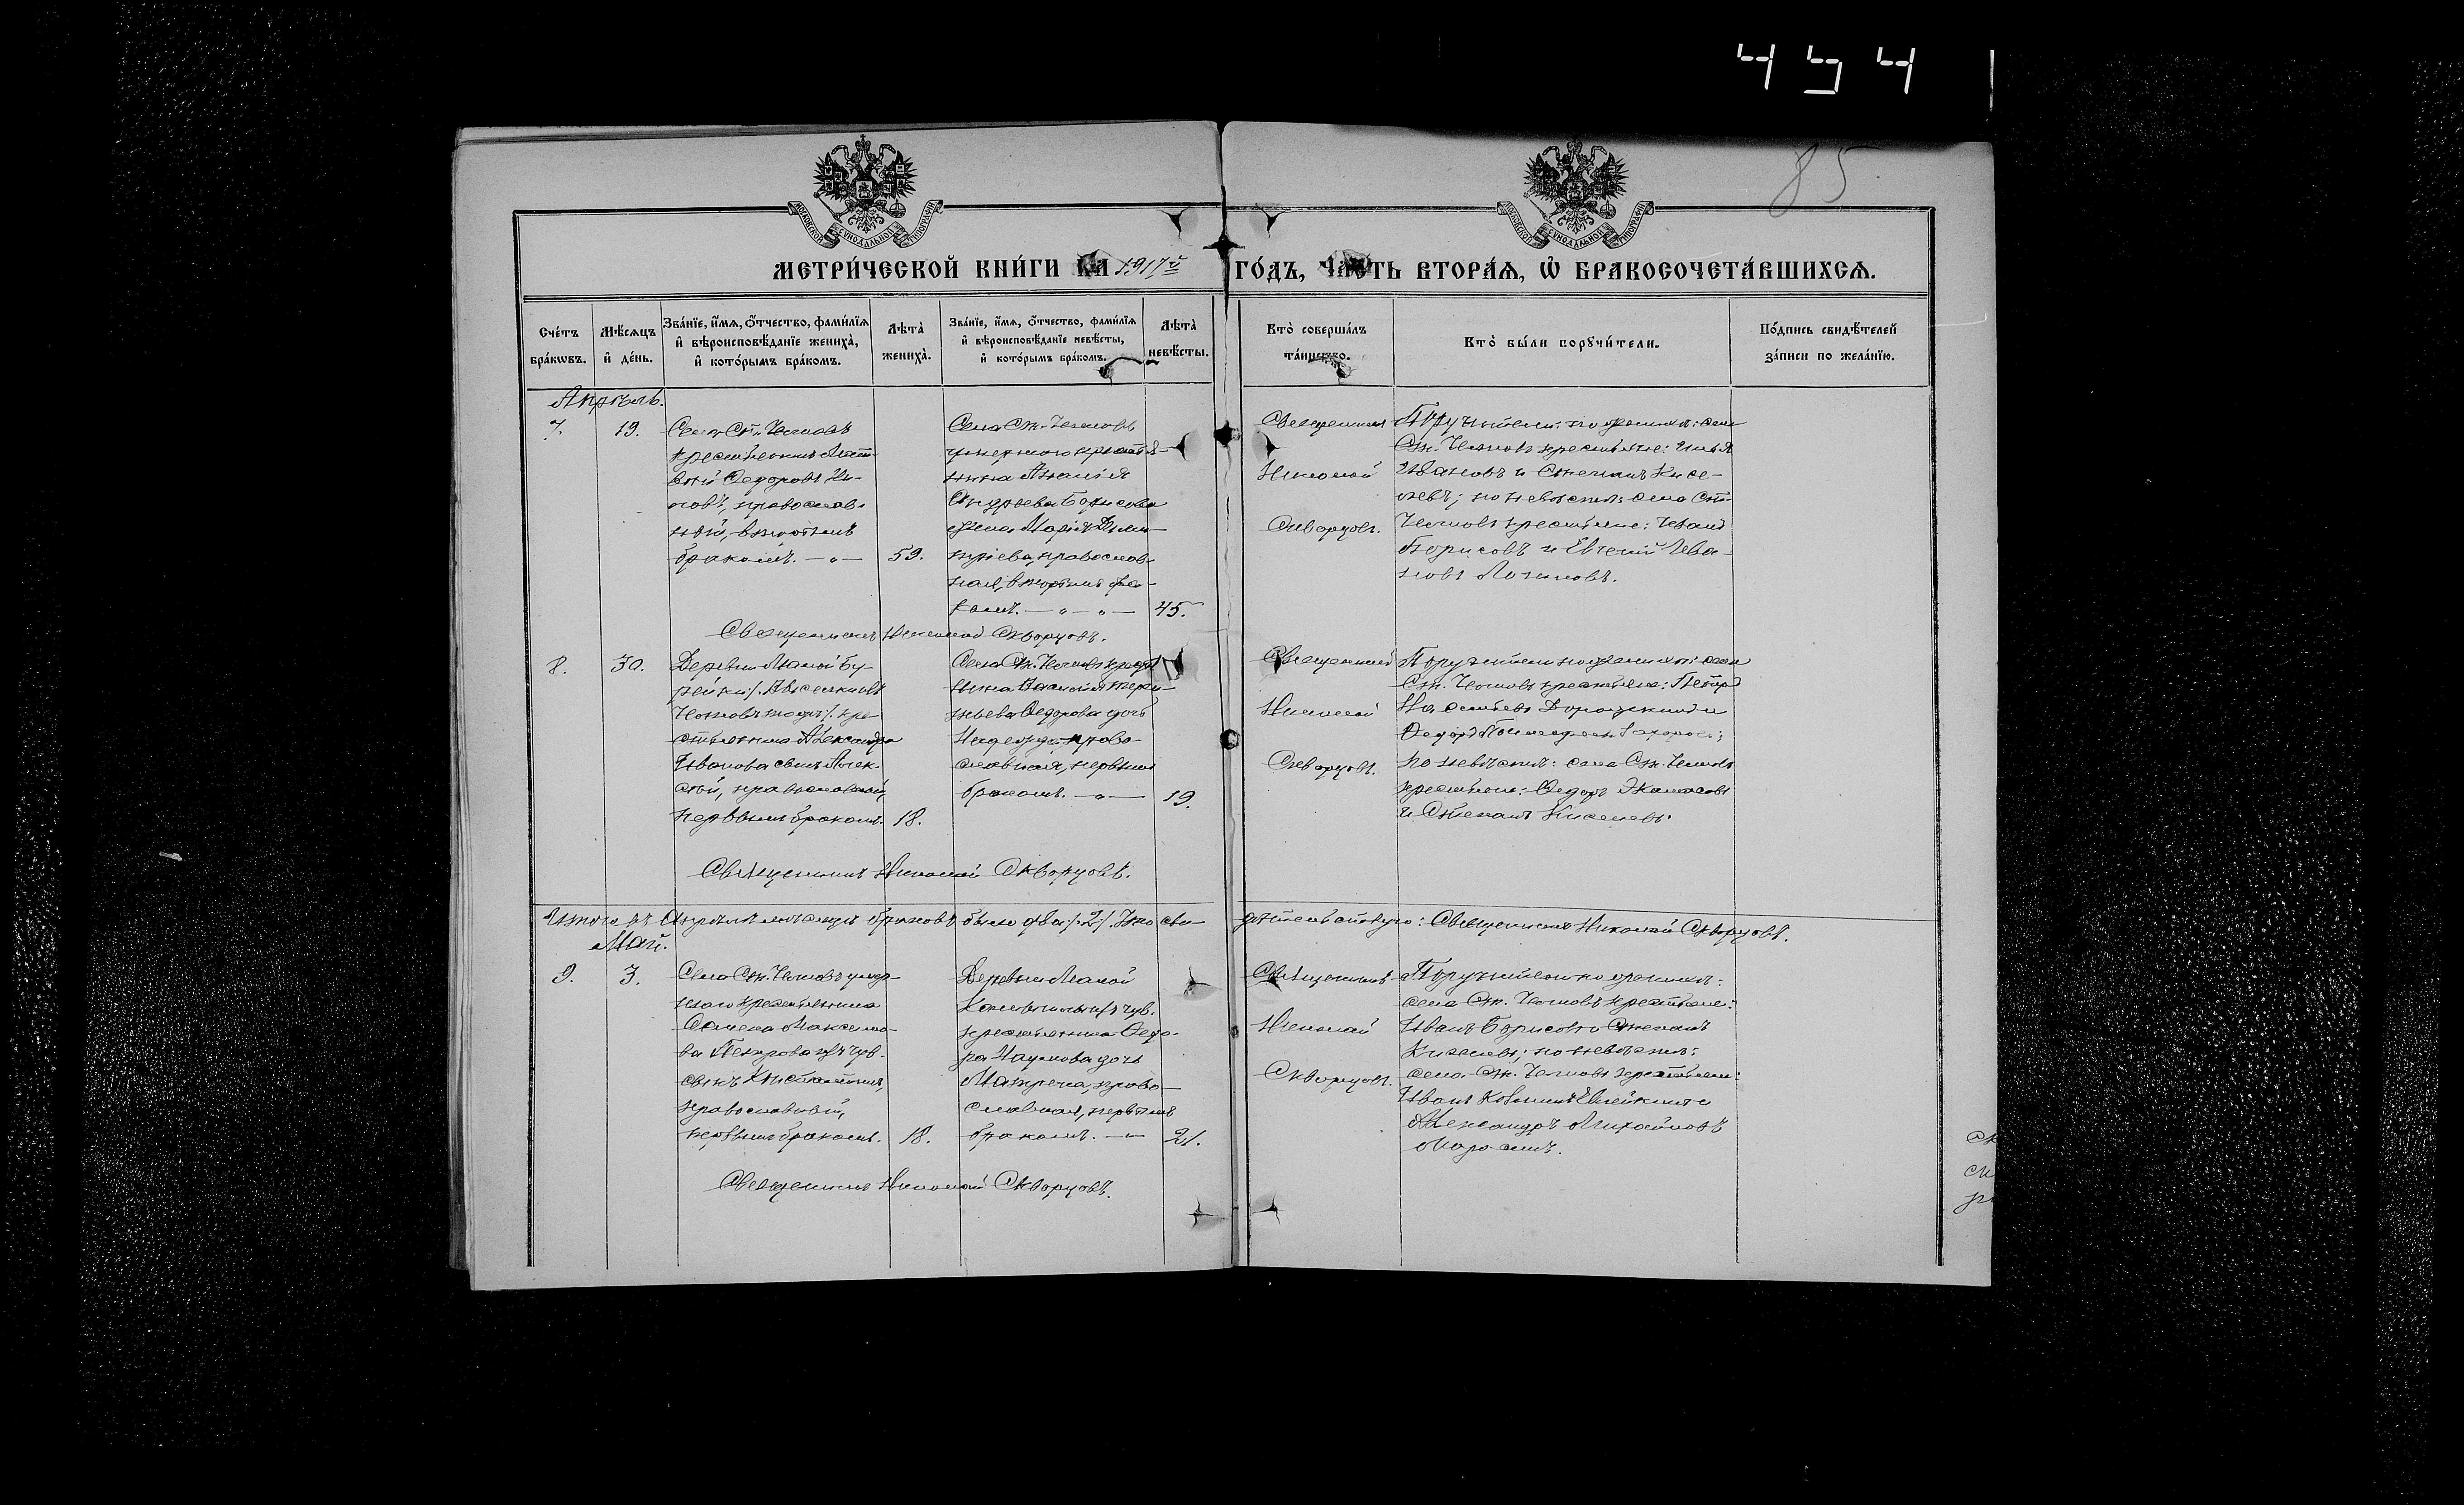 454
85
МОСКОВСКОЙ СѴНОДАЛЬНОЙ ТИПОГРАФІИ
МОСКОВСКОЙ СѴНОДАЛЬНОЙ ТИПОГРАФІИ
МЕТРИ́ЧЕСКОЙ КНИ́ГИ НА 1917й ГО́ДЪ, ЧАСТЬ ВТОРА́Я, Ѡ БРАКОСОЧЕТА́ВШИХСЯ.
Сче́тъ бра́кωвъ.
Мѣ́сяцъ и҆ де́нь.
Зва́нїе, и҆́мя, ѻ҆́тчество, фами́лїя и҆ вѣроисповѣ́данїе жениха̀, и҆ кото́рымъ бра́комъ.
Лѣта̀ жениха̀.
Зва́нїе, и҆́мя, ѻ҆́тчество, фами́лїя и҆ вѣроисповѣ́данїе невѣ́сты, и҆ кото́рымъ бра́комъ.
Лѣта̀ невѣ́сты.
Кто̀ соверша́лъ та́инство.
Кто̀ бы́ли порꙋчи́тели.
По́дпись свидѣ́телей за́писи по жела́нїю.
Апрѣль.
7.
19.
Села Ст. Чесновъ
крестьянинъ
Ѳедоровъ
православ-
ный, вторымъ
бракомъ.
59.
Села Ст. Чесновъ
умершаго крестья-
нина
Андреева Борисова
жена Марія Дими-
тріева, православ-
ная, вторымъ бра-
комъ.
45.
Священникъ
Николай
Скворцовъ.
Поручители: по женихѣ: села
Ст. Чесновъ крестьяне: Илья
Ивановъ и Степанъ Кисе-
левъ; по невѣстѣ: села Ст.
Чесновъ крестьяне: Иванъ
Борисовъ и Евгеній Ива-
новъ
Священникъ Николай Скворцовъ.
8.
30.
Деревни Малой Бу-
крестьянина Александра
Иванова сынъ Алек-
сѣй, православный,
первымъ бракомъ.
18.
Села Ст. Чесновъ крестья-
нина Василія
Ѳедорова дочь
Надежда, право-
славная, первымъ
бракомъ.
19.
Священникъ
Николай
Скворцовъ.
Поручители по женихѣ: села
Ст. Чесновъ крестьяне: Петръ
и
Ѳедоръ
по невѣстѣ: села Ст. Чесновъ
крестьяне: Ѳедоръ
и Степанъ Киселевъ.
Священникъ Николай Скворцовъ.
Итого въ Апрѣлѣ мѣсяцѣ браковъ было два /2/. Что сви-
дѣтельствую: Священникъ Николай Скворцовъ.
Май.
9.
3.
Села Ст. Чесновъ умер-
шаго крестьянина
Семена Максимо-
ва Петрова
сынъ Константинъ,
православный,
первымъ бракомъ.
18.
Деревни Малой
крестьянина Ѳедо-
ра Наумова дочь
Матрена, право-
славная, первымъ
бракомъ.
21.
Священникъ
Николай
Скворцовъ.
Поручители по женихѣ:
села Ст. Чесновъ крестьяне:
Иванъ Борисовъ и Степанъ
Киселевъ; по невѣстѣ:
села Ст. Чесновъ крестьяне:
Иванъ
Александръ Михайловъ
Священникъ Николай Скворцовъ.